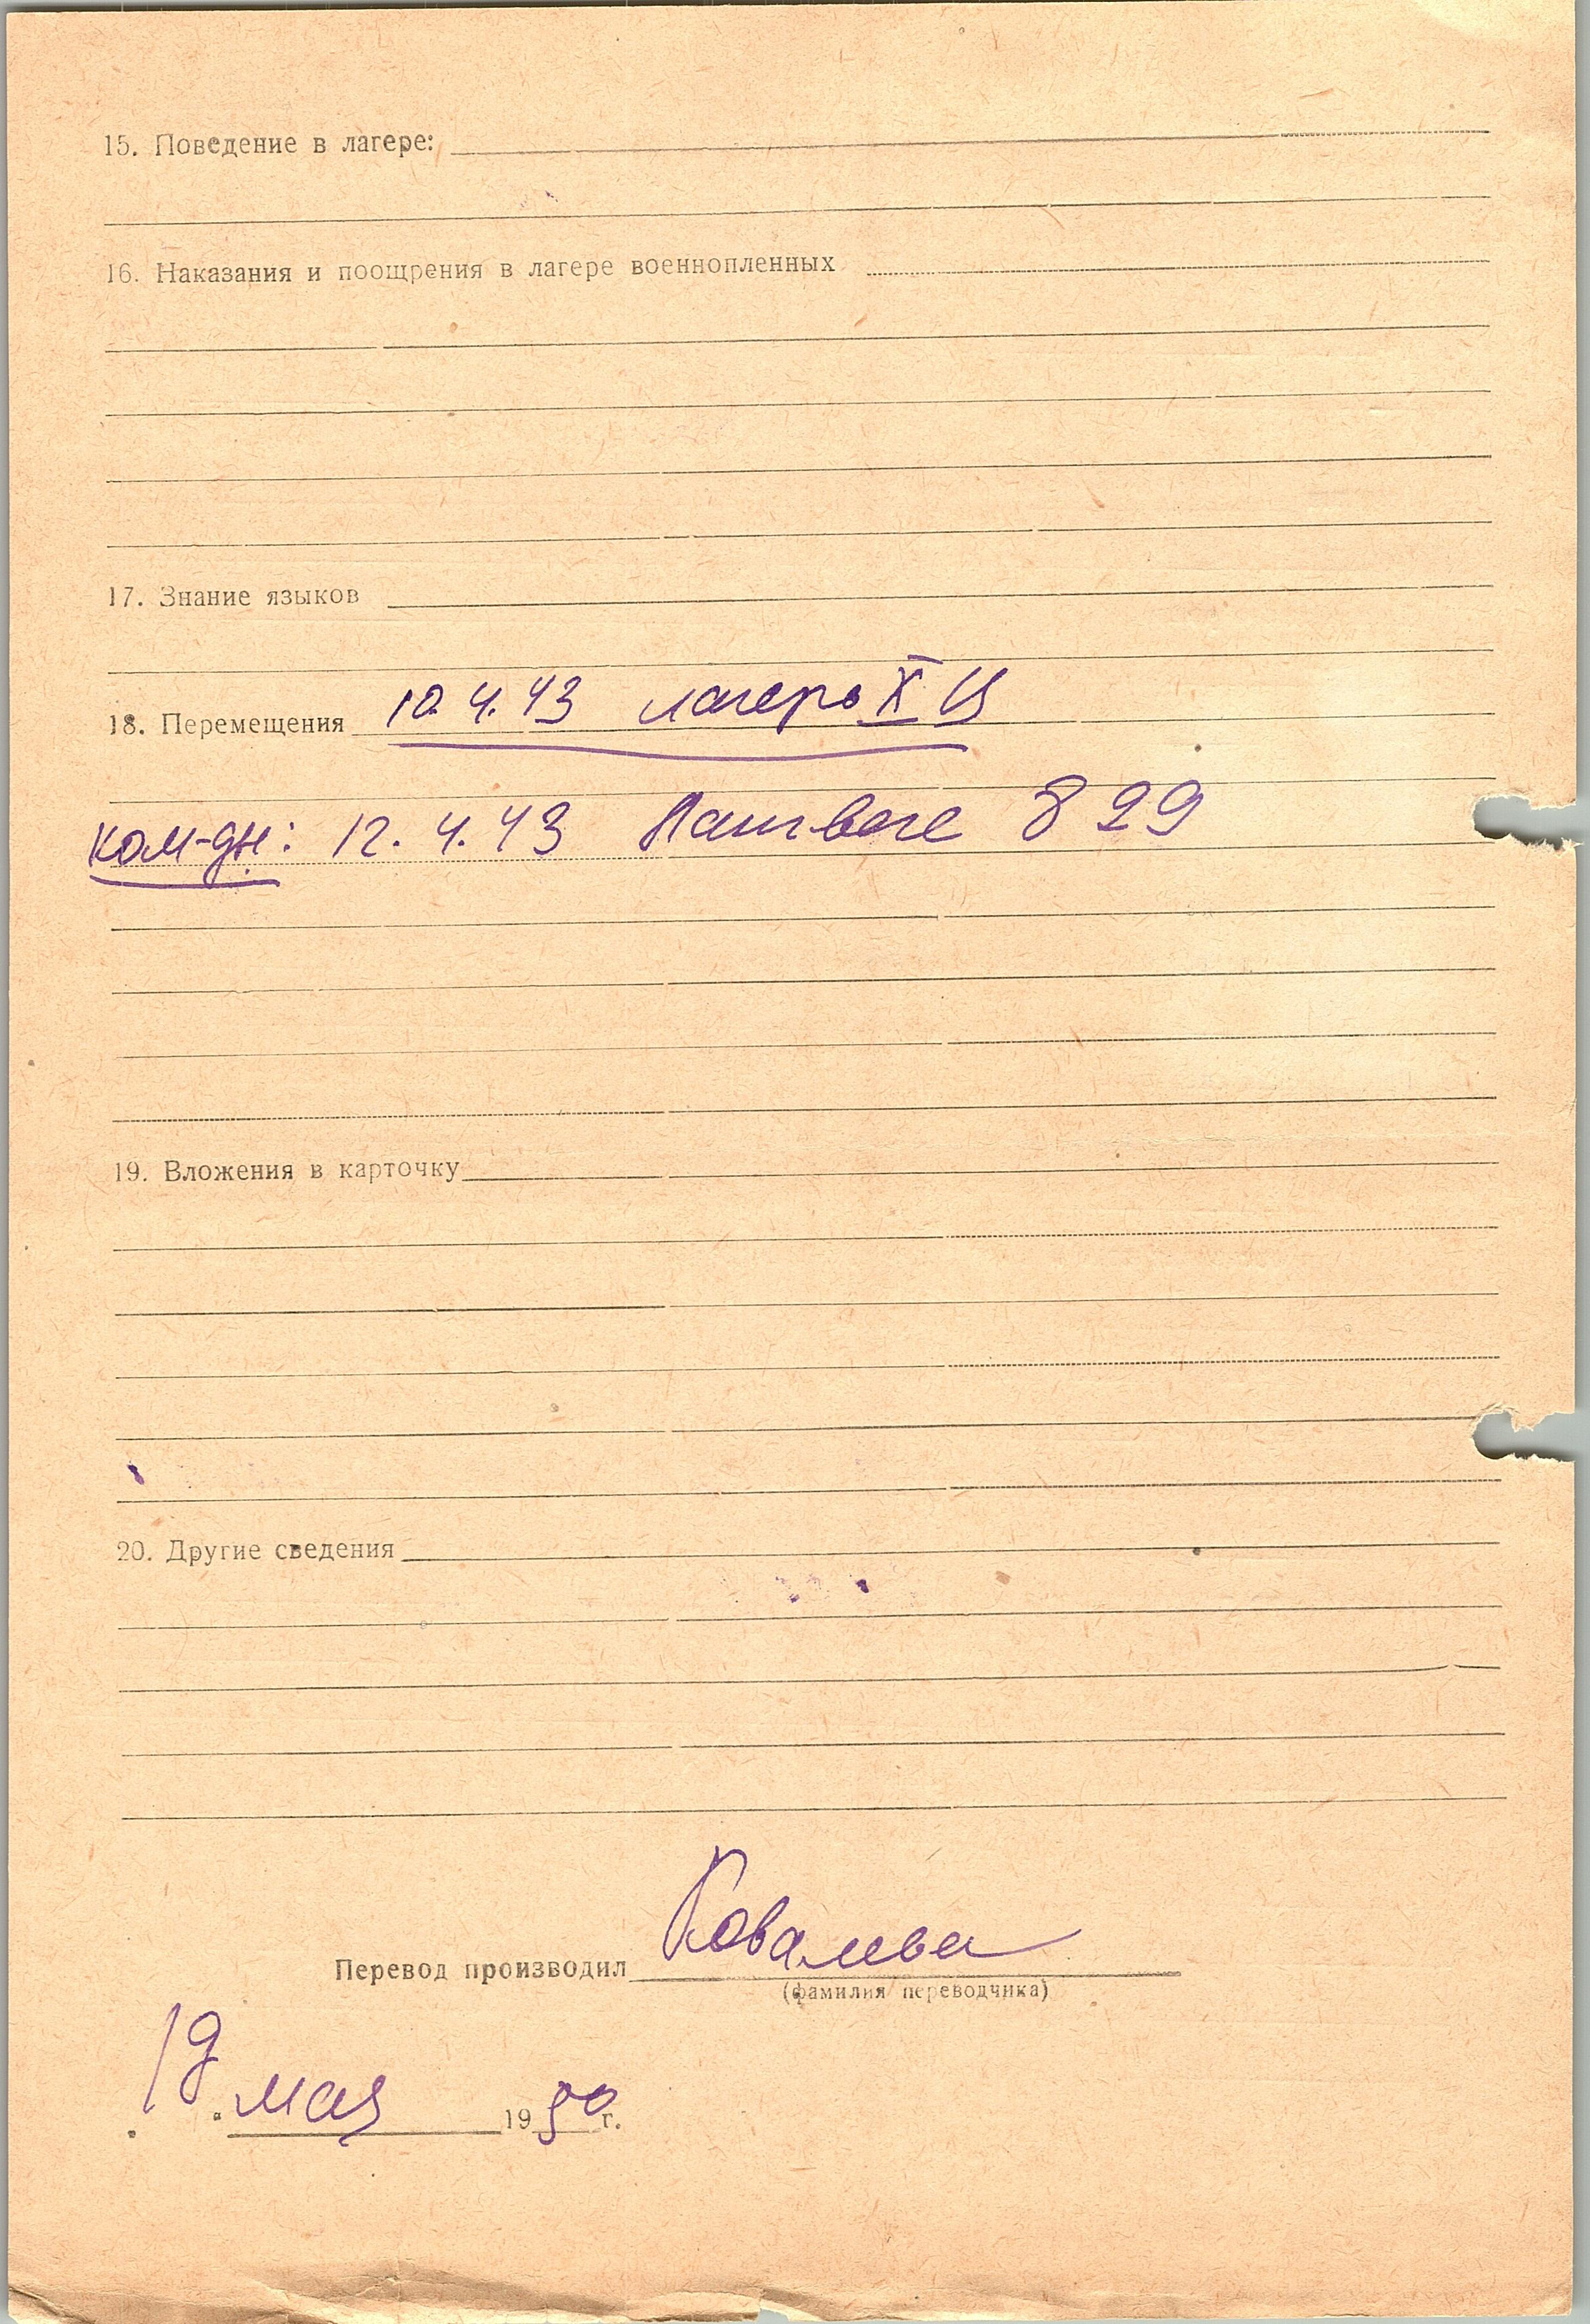 15. Поведение в лагере:
16. Наказания и поощрения в лагере военнопленных
17. Знание языков
18. Перемещения 10.4.43 лагерь X Ц
ком-ды: 12.4.43 829
19. Вложения в карточку
20. Другие сведения
Перевод производил Ковалева
(фамилия переводчика)
19 мая 1950 г.